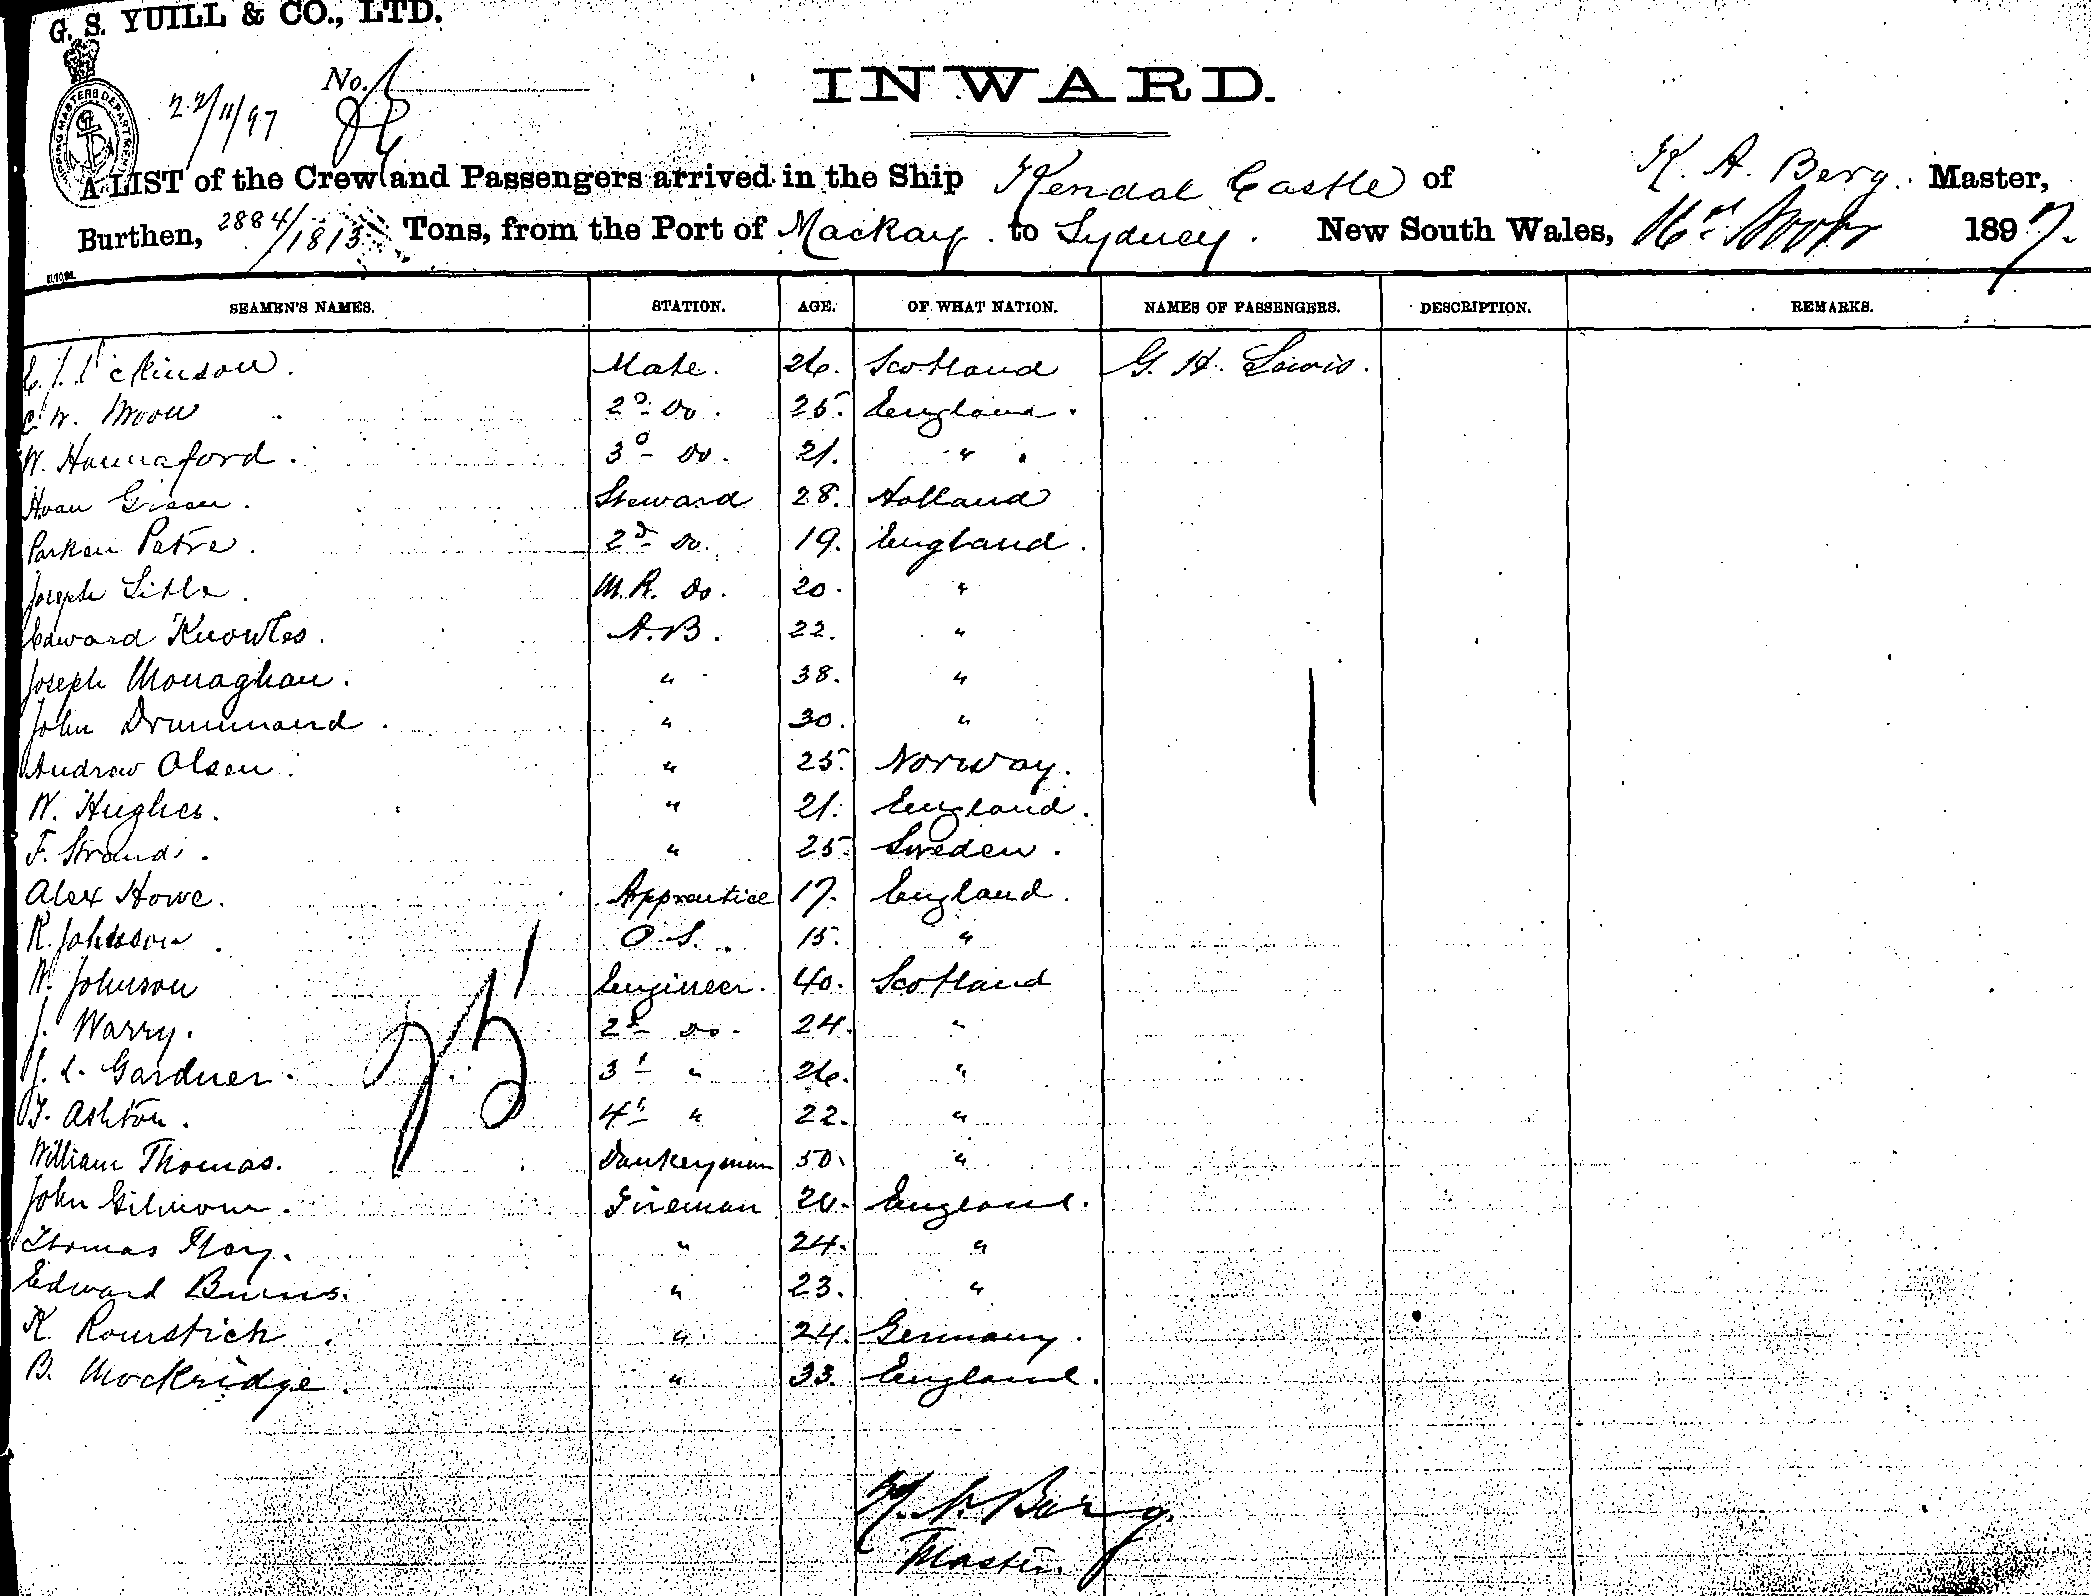 G. S. YUILL & CO., LTD.
No.
22/11/97
INWARD.
A LIST of the Crew and Passengers arrived in the Ship Kendal Castle of K. A. Berg. Master,
Burthen, 2884/1813 Tons, from the Port of Mackay. to Sydney. New South Wales, 16th Novbr 1897.
SEAMEN'S NAMES. STATION. AGE. OF WHAT NATION. NAMES OF PASSENGERS. DESCRIPTION. REMARKS.
Mate. 26. Scotland G. H. Lewis.
C. W. Moon 2d Do. 25. England.
W. Hannaford. 3d Do. 21. "
Steward 28. Holland
Petre. 2d Do. 19. England.
Joseph M.R. Do. 20. "
Edward Knowles. A.B. 22. "
Joseph Monaghan. " 38. "
John Drummond. " 30. "
Andrew Olsen. " 25. Norway.
W. Hughes. " 21. England.
F. Strand. " 25. Sweden.
Alex Howe. Apprentice 17. England.
R. Johnson. O.S. 15. "
W. Johnson Engineer. 40. Scotland
J. Warry. 2d Do. 24. "
Gardner. 3d " 26. "
T. Ashton. 4th " 22. "
William Thomas. Donkeyman 50. "
John Gilmour. Fireman England.
Thomas " 24. "
Edward Burns. " 23. "
K. " 24. Germany.
B. Mockridge. " 33. England.
K. A. Berg.
Master.